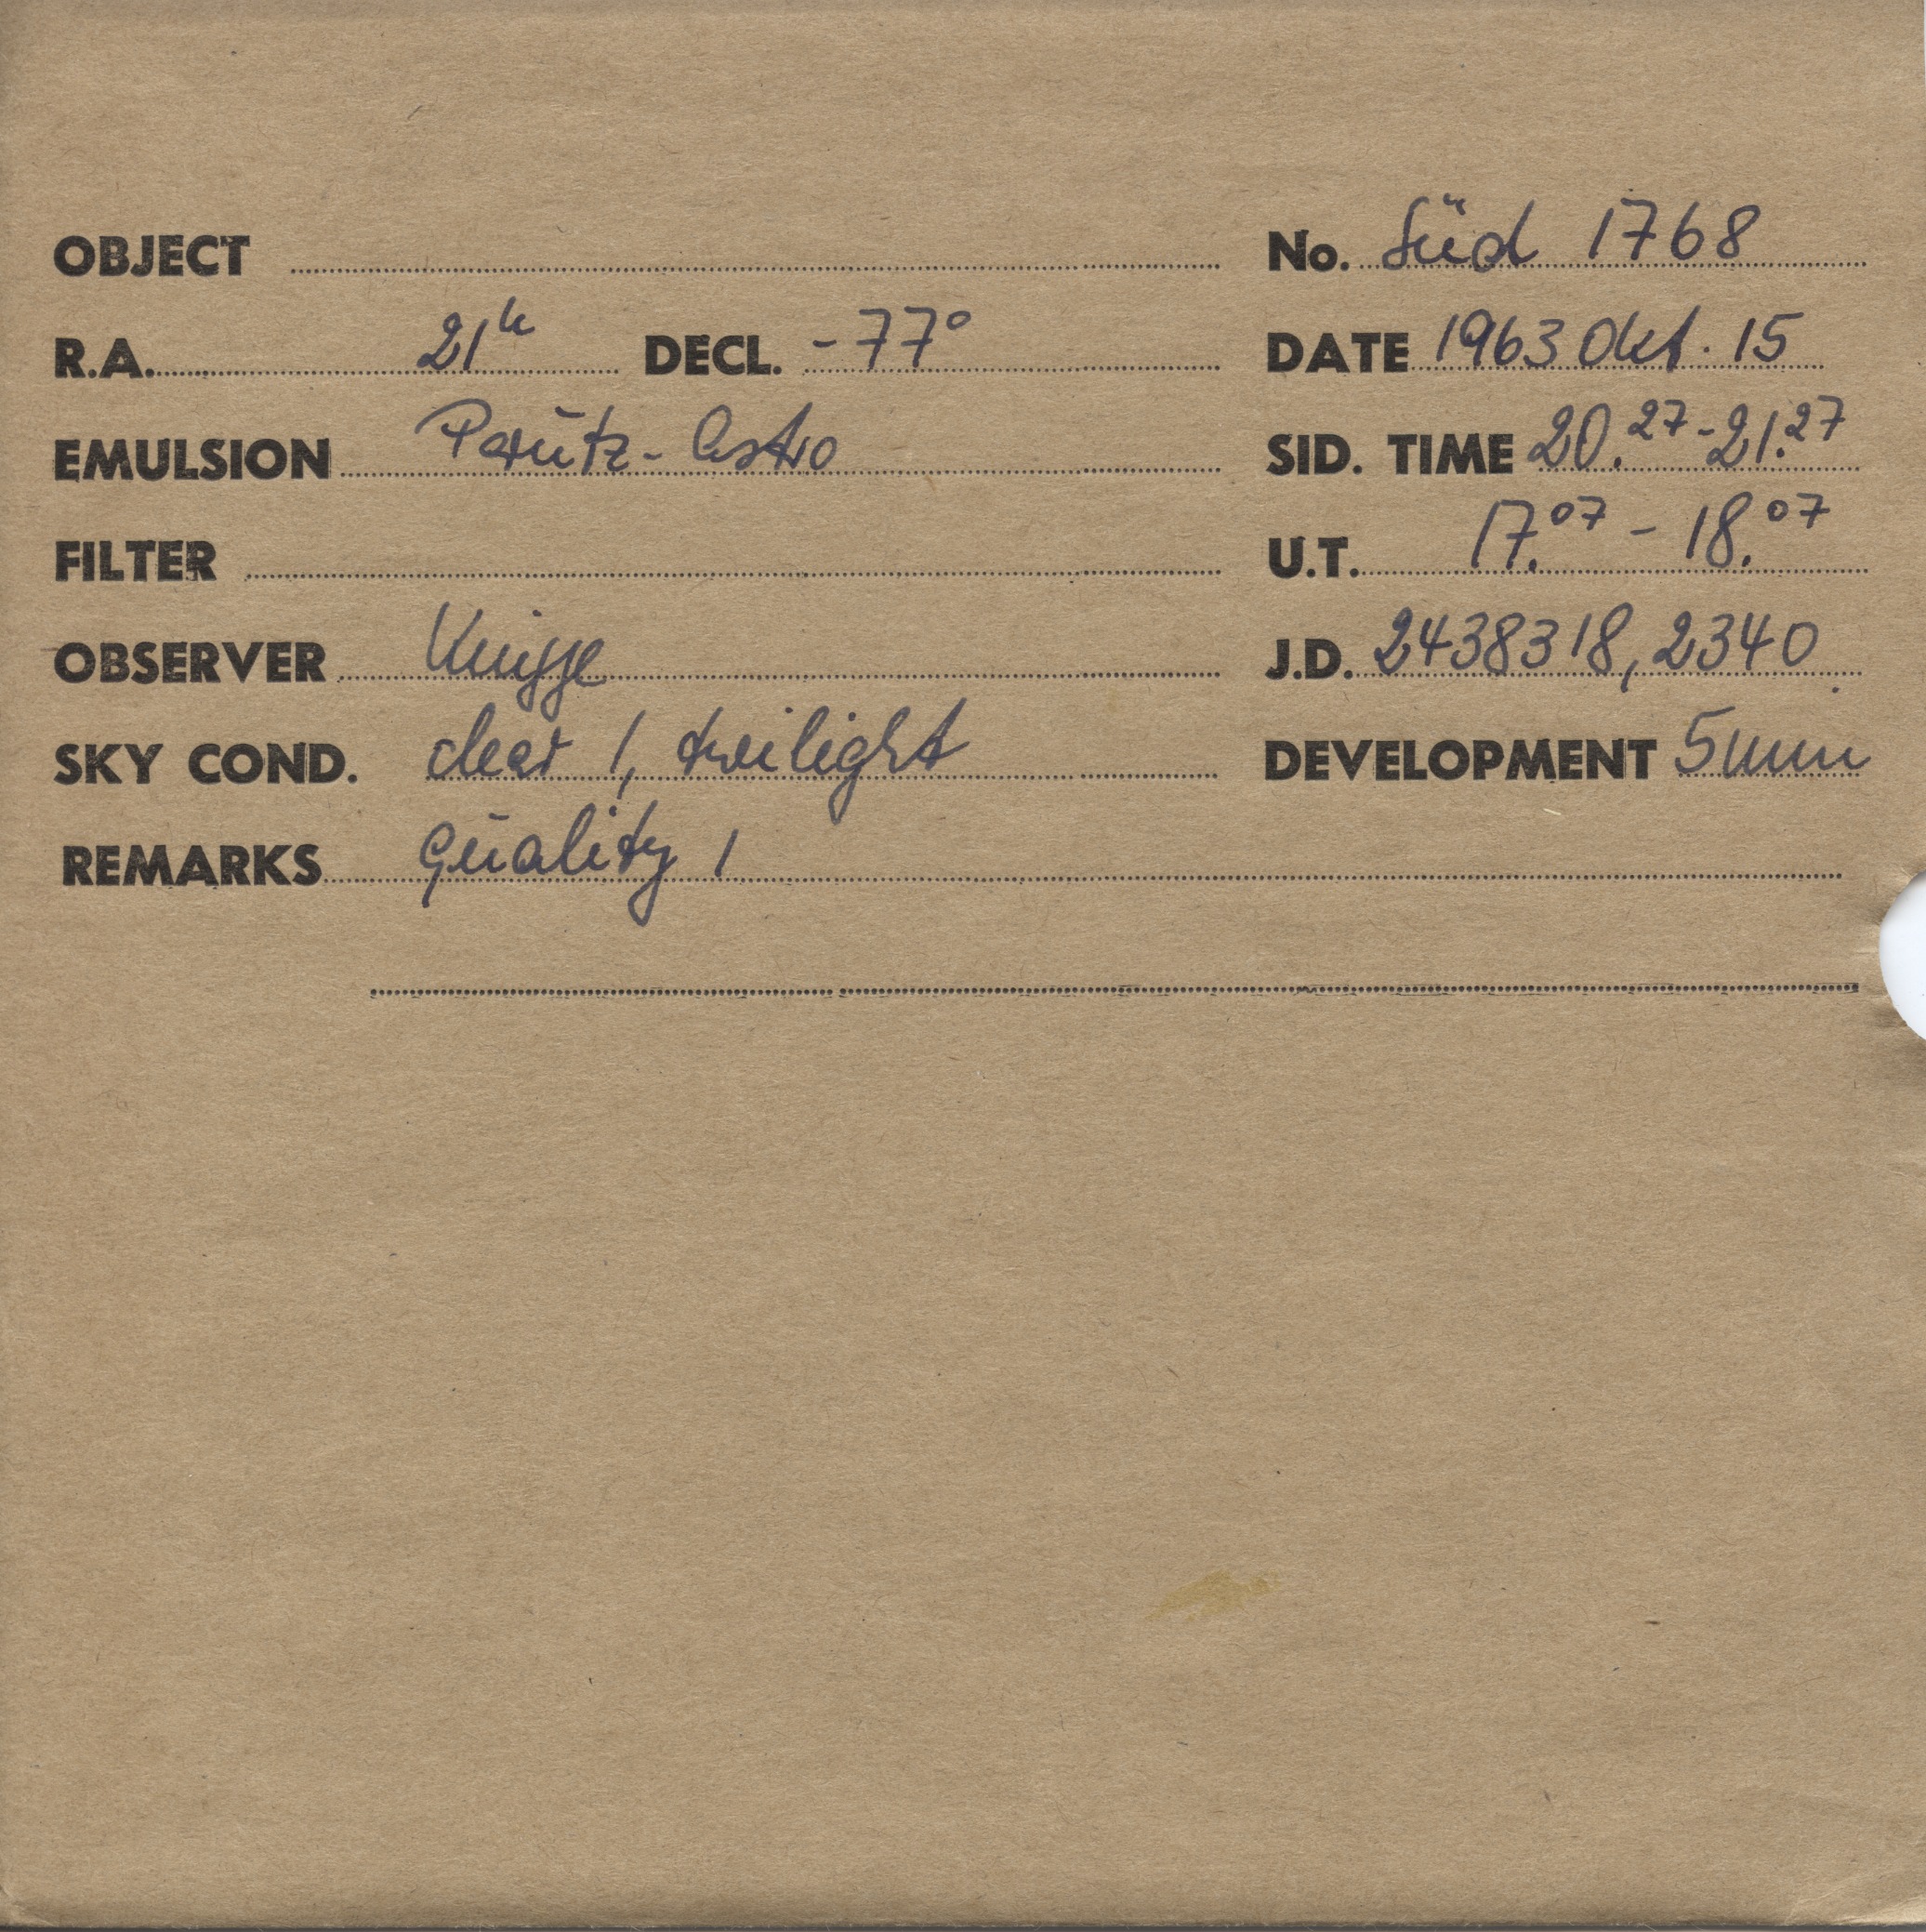 OBJECT No. Süd 1768
R.A. 21h DECL. -77° DATE 1963 Okt. 15
EMULSION Perutz-Astro SID. TIME 20.27-21.27
FILTER U.T. 17.07 - 18.07
OBSERVER Knigge J.D. 2438318,2340
SKY COND. clear 1, twilight DEVELOPMENT 5min
REMARKS Quality 1